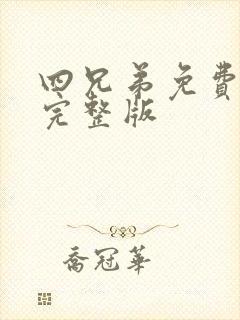 四兄弟免費
完整版
喬冠華